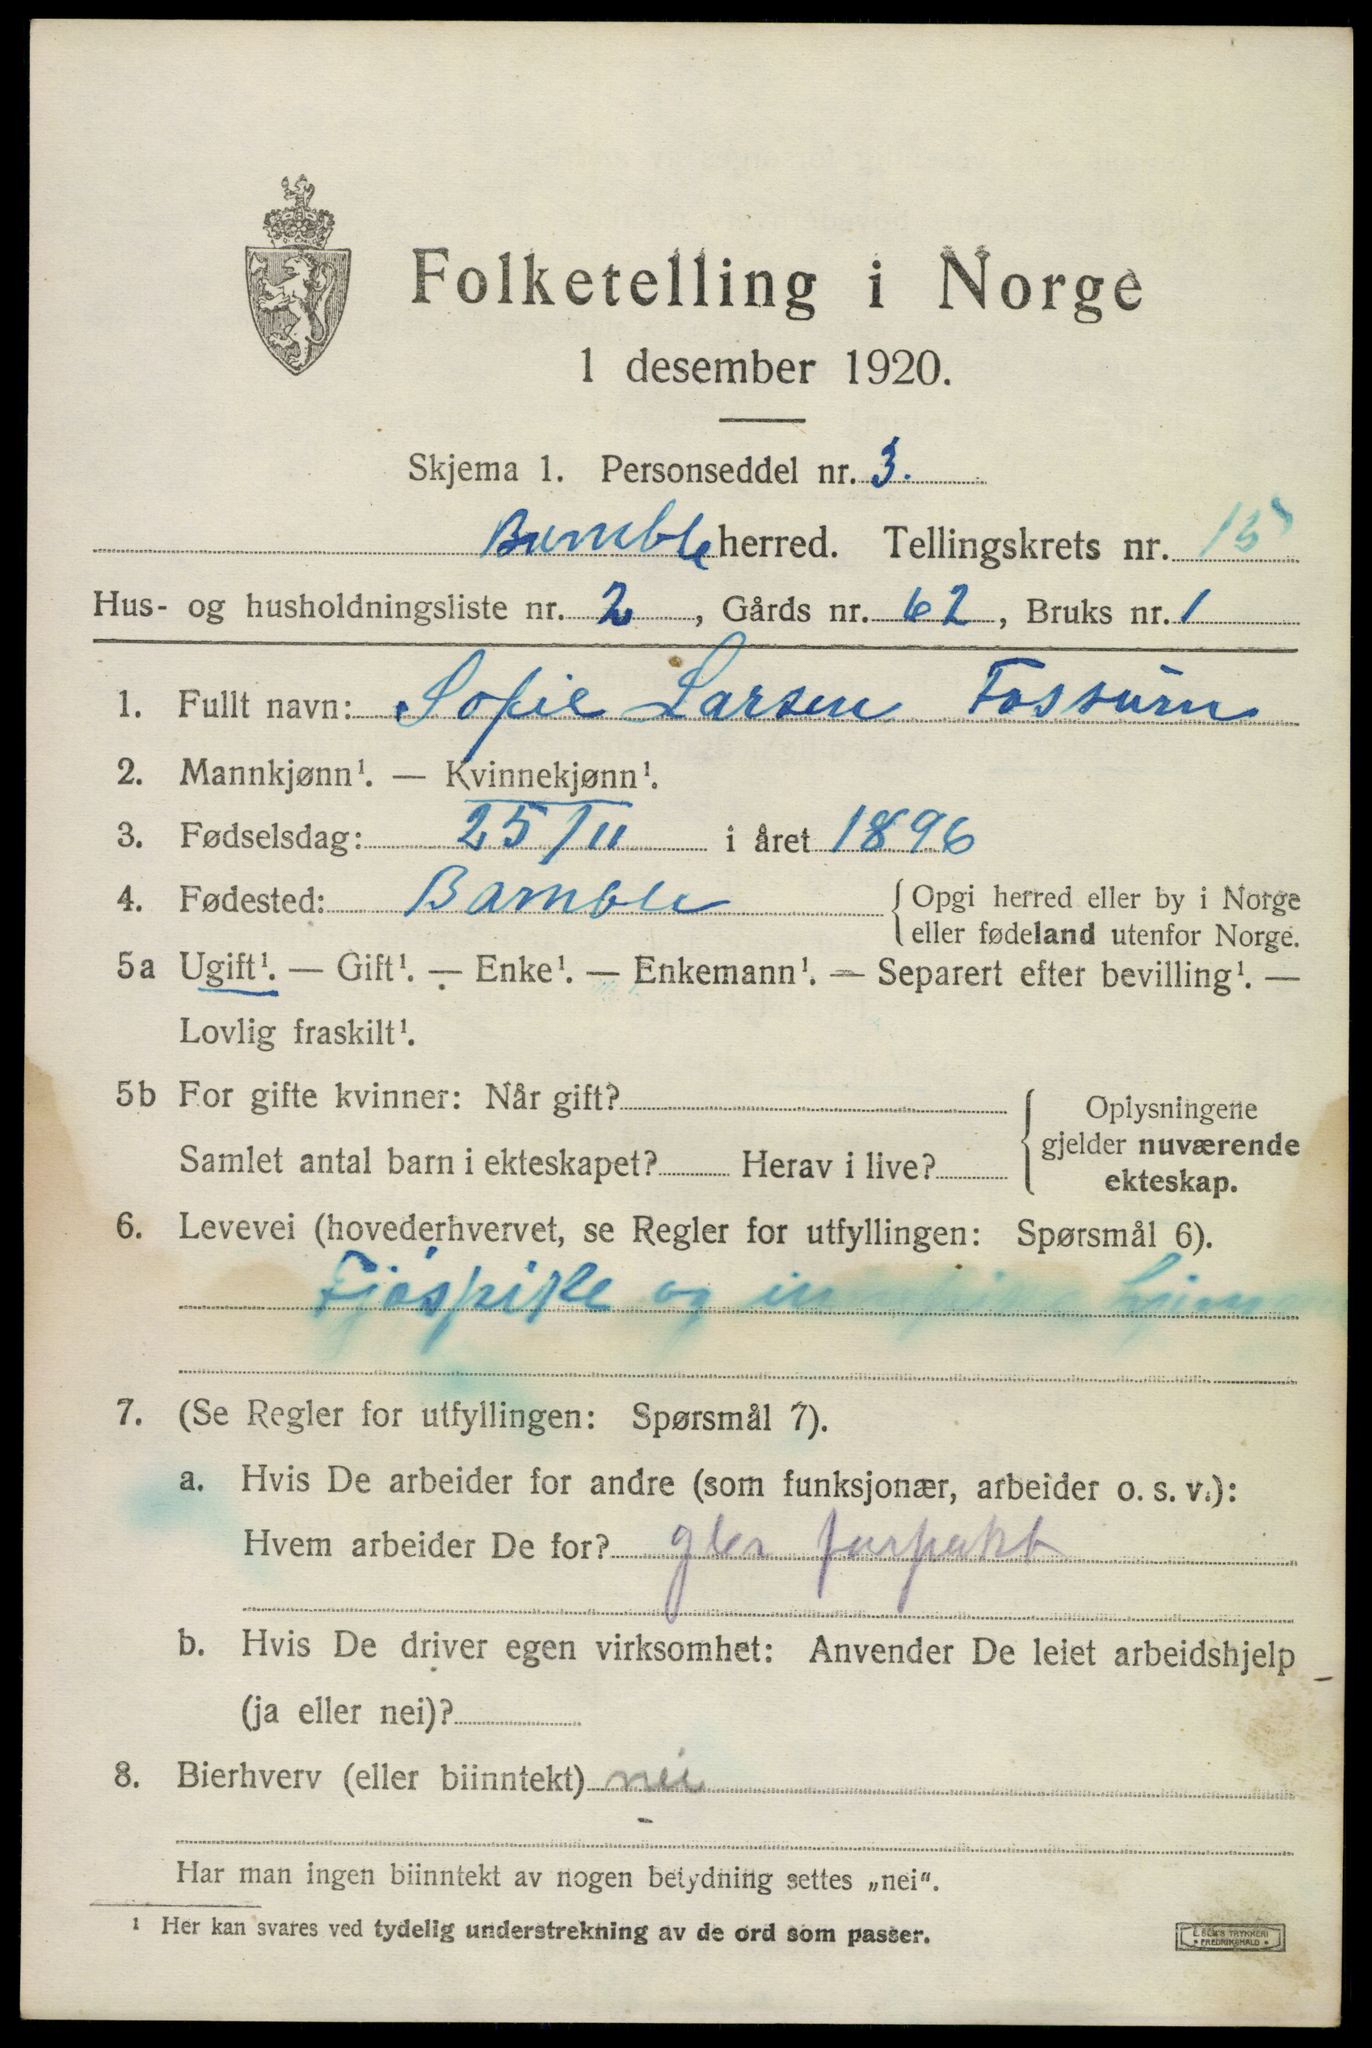 Folketelling i Norge
1 desember 1920.
Skjema 1. Personseddel nr. 3.
Bamble herred. Tellingskrets nr. 15
Hus- og husholdningsliste nr. 2, Gårds nr. 62, Bruks nr. 1
1. Fullt navn: Sofie Larsen Fossum
2. Mannkjønn¹. — Kvinnekjønn¹.
3. Fødselsdag: 25/11 i året 1896
4. Fødested: Bamble { Opgi herred eller by i Norge
eller fødeland utenfor Norge.
5a Ugift¹. — Gift¹. — Enke¹. — Enkemann¹. — Separert efter bevilling¹. —
Lovlig fraskilt¹.
5b For gifte kvinner: Når gift?
Samlet antal barn i ekteskapet? Herav i live?
{ Oplysningene
gjelder nuværende
ekteskap.
6. Levevei (hovederhvervet, se Regler for utfyllingen: Spørsmål 6).
Fjøspike og
7. (Se Regler for utfyllingen: Spørsmål 7).
a. Hvis De arbeider for andre (som funksjonær, arbeider o. s. v.):
Hvem arbeider De for?
b. Hvis De driver egen virksomhet: Anvender De leiet arbeidshjelp
(ja eller nei)?
8. Bierhverv (eller biinntekt) nei
Har man ingen biinntekt av nogen betydning settes „nei".
¹ Her kan svares ved tydelig understrekning av de ord som passer.
E. SEM'S TRYKKERI
• FREDRIKSHALD •